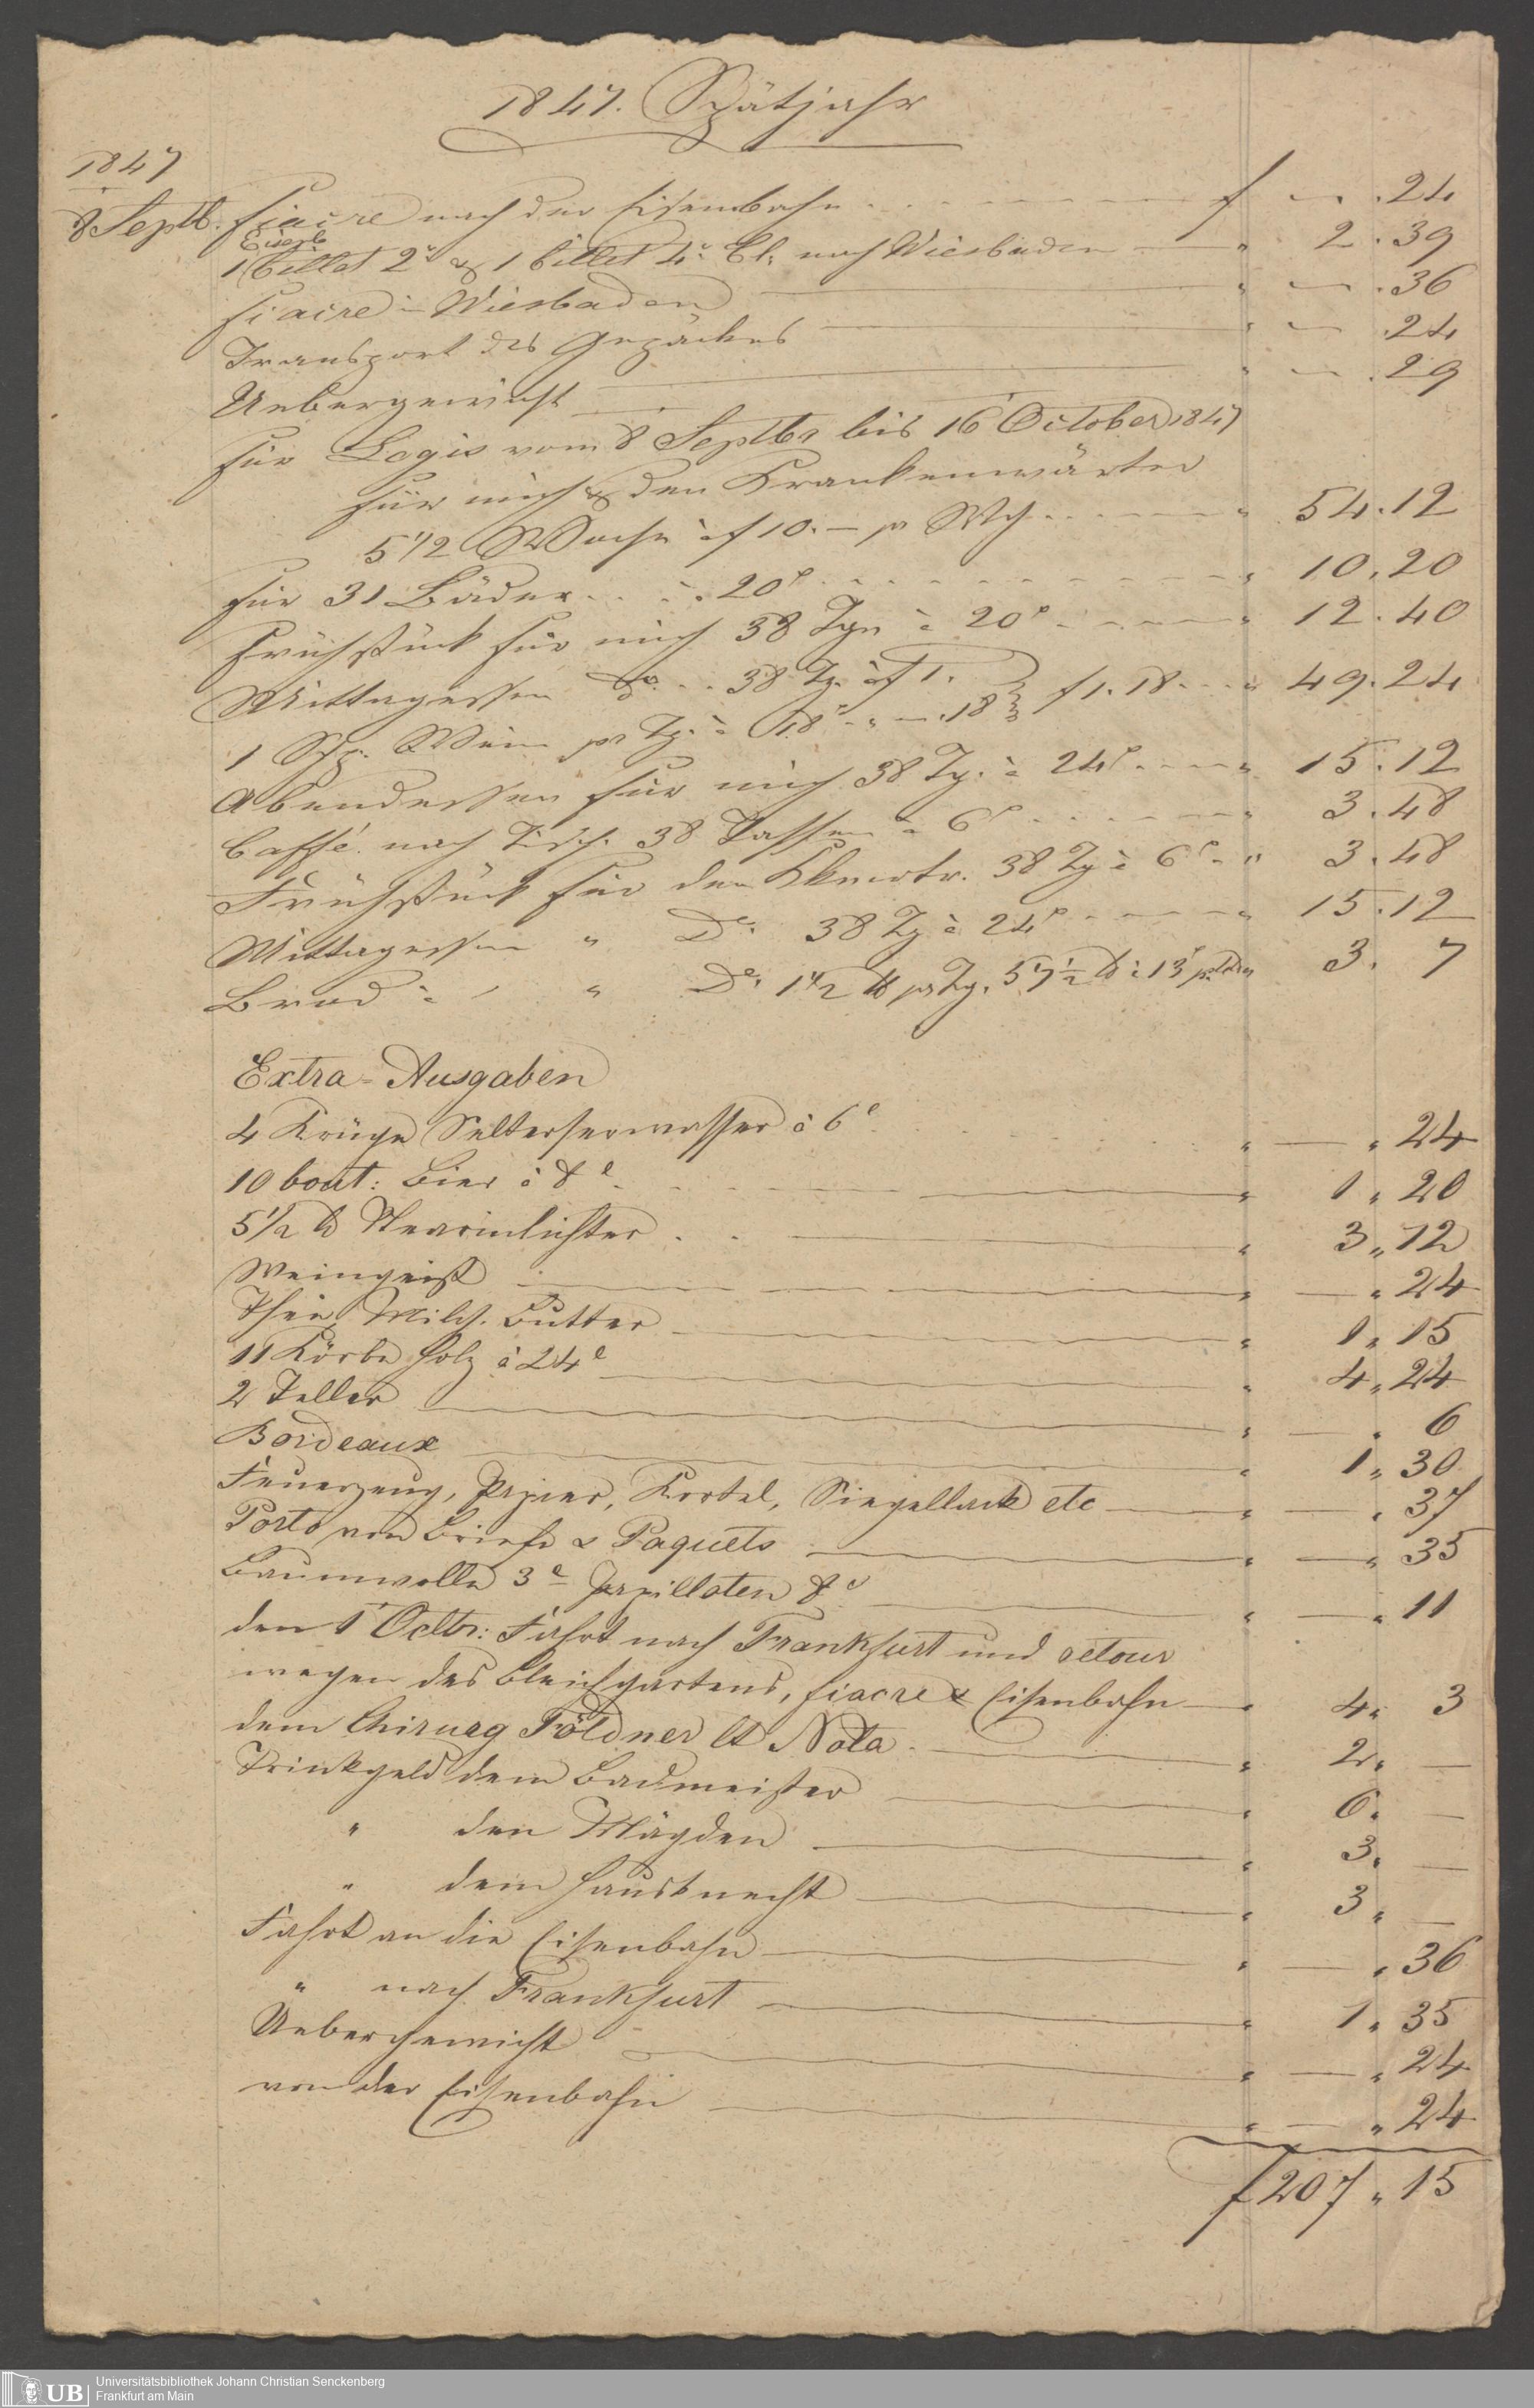 1847. Spätjahr
1847
8 Septb. fiacre nach der Eisenbahn f — . 24
1 billet 2r & 1 billet 4r Cl. nach Wiesbaden " 2 . 39
fiacre in Wiesbaden " — . 36
Transport des Gepäckes " — . 24
Uebergewicht " — . 29
für Logis vom 8 Septbr bis 16 October 1847
für mich & den Krankenwärter
5 1/2 Woche à f 10. — pr Wch " 54 . 12
für 31 Bäder à 20 " 10 . 20
Frühstück für mich 38 Tge à 20 " 12 . 40
Mittagessen do. 38 Tg. à f 1. } f 1. 18 " 49 . 24
1 Sch. Wein pr Tg. à 18 " — . 18
Abendessen für mich 38 Tg. à 24 " 15 . 12
Caffé nach Tisch. 38 Tassen à 6 " 3 . 48
Frühstück für den Kknwtr. 38 Tg à 6 " 3 . 48
Mittagessen " Do. 38 Tg à 24 " 15 . 12
Brod " Do. 1 1/2 ℔ pr Tg. 57 1/2 ℔ à 13 3 . 7
Extra-Ausgaben
4 Krüge Selterserwasser à 6 " — " 24
10 bout: Bier à 8 " 1 " 20
5 1/2 ℔ Stearinlichter " 3 " 12
Weingeist " — " 24
Thee, Milch. Butter " 1 " 15
11 Körbe Holz à 24 " 4 " 24
2 Teller " — " 6
Bordeaux " 1 " 30
Feuerzeug, Papier, Kortel, Siegellack etc " — " 37
Porto von Briefe & Paquets " — " 35
Baumwolle 3 Papilloten 8 " — " 11
den 1 Octbr: Fahrt nach Frankfurt und retour
wegen des Bleichgartens, fiacre & Eisenbahn " 4 " 3
dem Chirurg Földner lt Nota " 2 " —
Trinkgeld dem Badmeister " 6 " —
" den Mägden " 3 " —
" dem Hausknecht " 3 " —
Fahrt an die Eisenbahn " — " 36
" nach Frankfurt " 1 " 35
Uebergewicht " — " 24
von der Eisenbahn " — " 24
f 207 " 15
UB Universitätsbibliothek Johann Christian Senckenberg
Frankfurt am Main